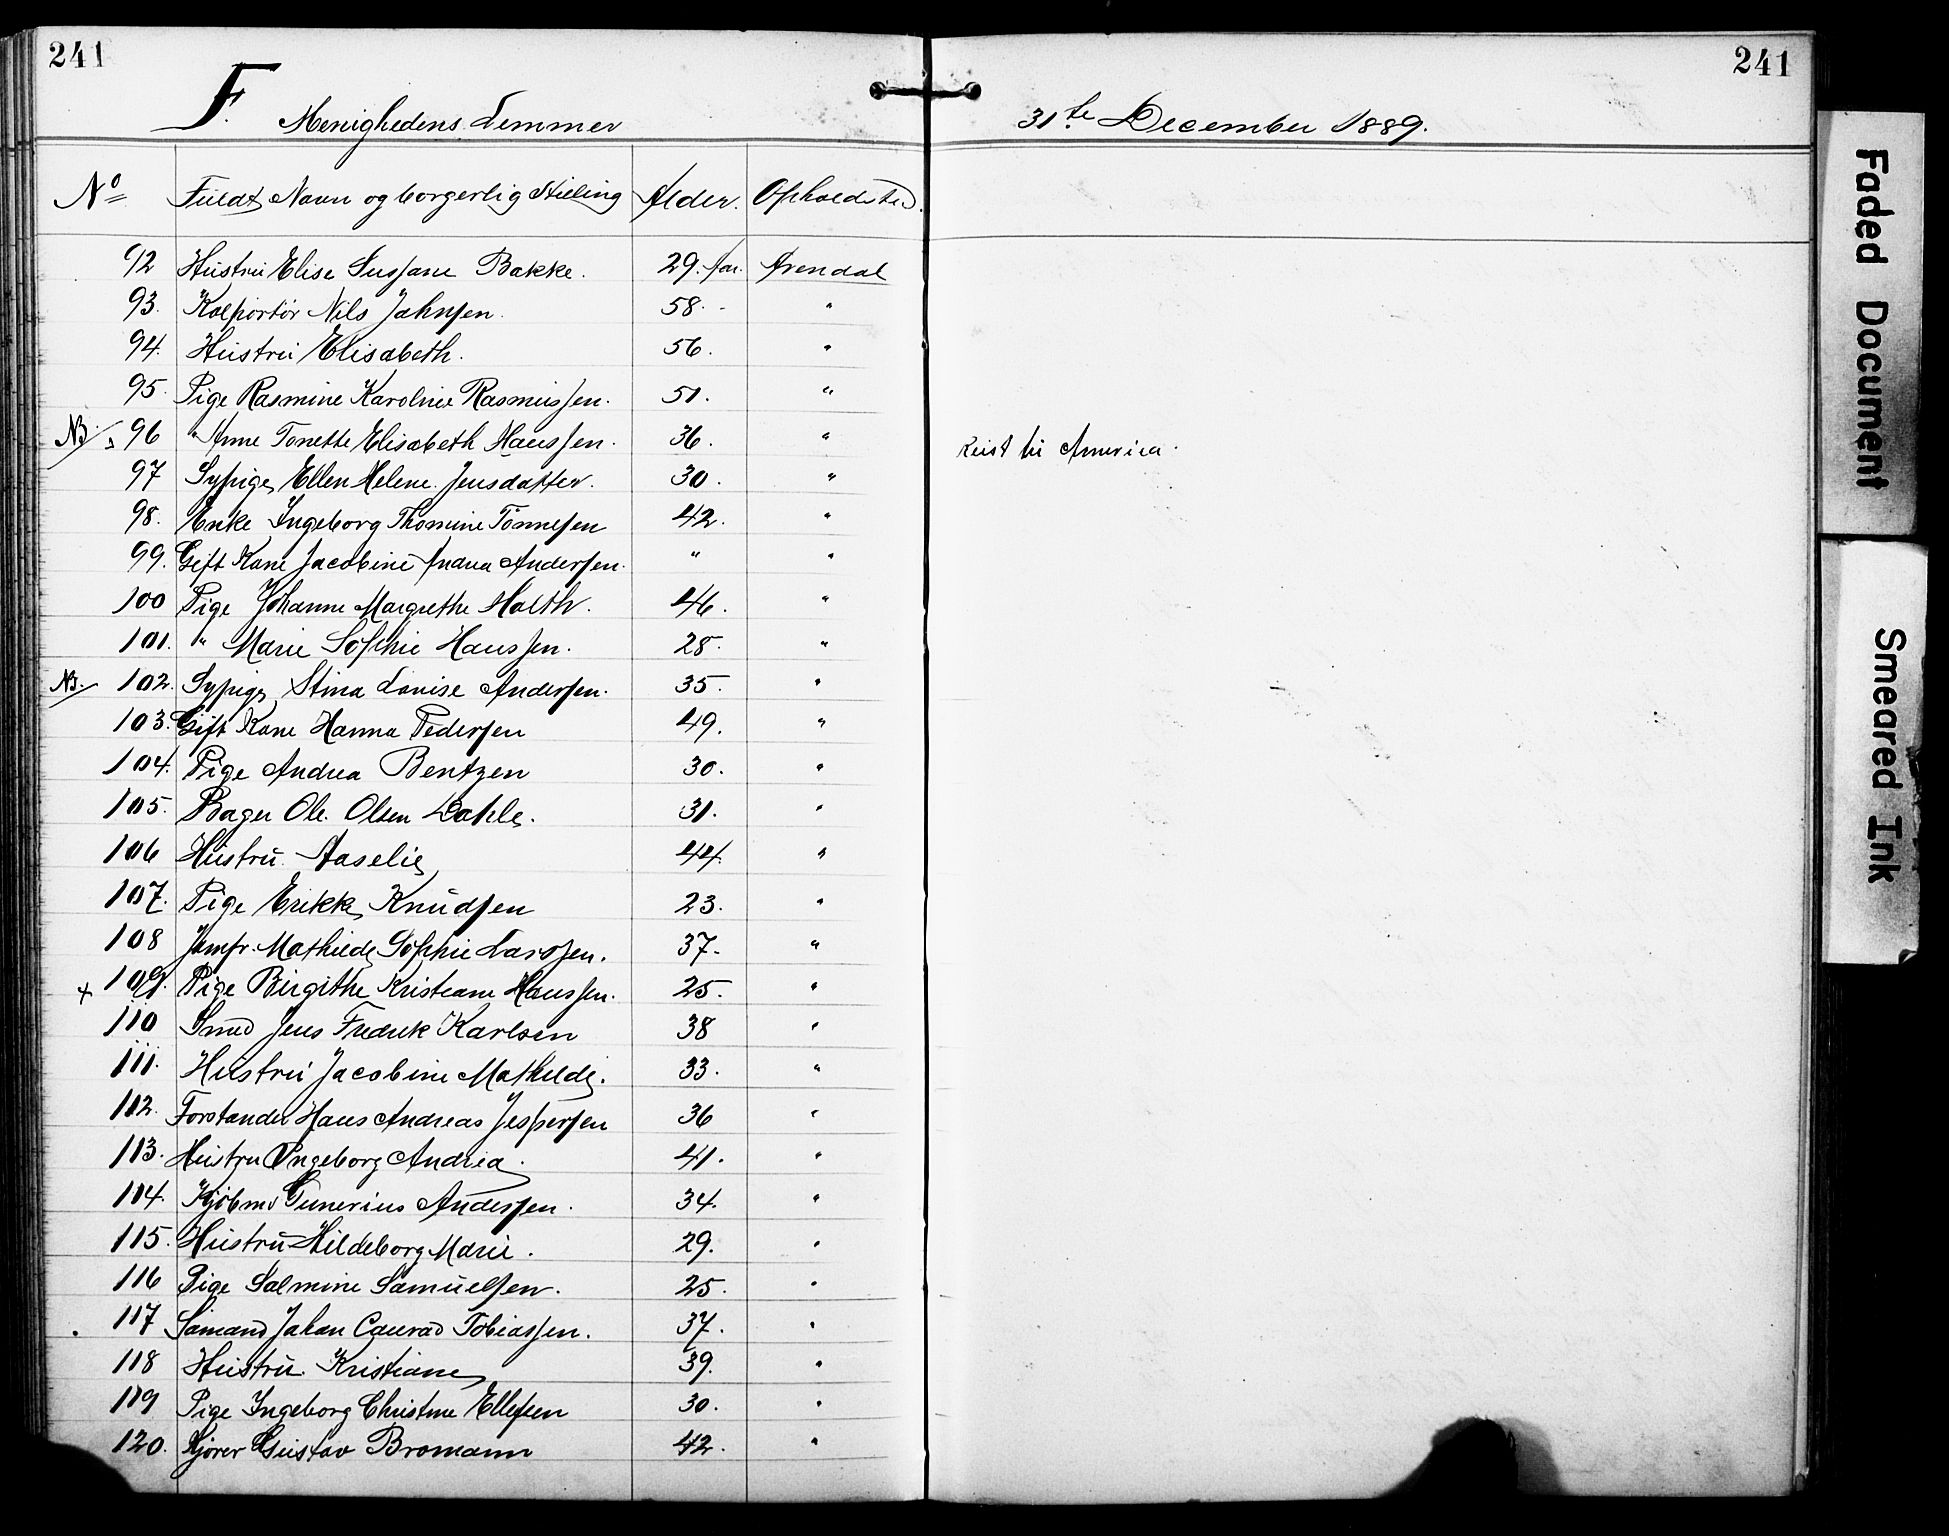 241 241
F. Menighedens Lemmer 31te December 1889.
No Fuldt Navn og borgerlig Stilling Alder. Opholdsted.
92 Hustru Elise Susane Bakke. 29. Aar. Arendal
93. Kolportör Nils Jahnsen. 58. - "
94. Hustru Elisabeth. 56. "
95. Pige Rasmine Karoline Rasmussen. 51. "
NB. 96 " Anne Tonette Elisabeth Hanssen. 36. " reist til America.
97 Sypige Ellen Helene Jensdatter. 30. "
98. Enke Ingeborg Thomine Tönnesen 42. "
99. Gift Kone Jacobine Andrea Andersen. " "
100 Pige Johanne Margrethe Holth. 46. "
101. " Marie Sophie Hanssen. 28. "
NB. 102. Sypige Stina Lovise Andersen. 35. "
103. Gift Kone Hanna Pedersen 49. "
104. Pige Andrea Bentzen 30. "
105. Bager Ole Olsen Dahle. 31. "
106 Hustru Aaselie 44. "
107. Pige Erikke Knudsen 23. "
108 Jomfr. Mathilde Sophie Larssen. 37. "
+ 109. Pige Birgithe Kristiane Hanssen. 25. "
110 Smed Jens Fredrik Karlsen 38 "
111. Hustru Jacobine Mathilde. 33. "
112. Forstander Hans Andreas Jespersen 36 "
113. Hustru Ingeborg Andrea. 41. "
114. Kjöbmd Gunerius Andersen. 34. "
115. Hustru Hildeborg Marie. 29. "
116 Pige Salmine Samuelsen. 25. "
117 Sömand Johan Conrad Tobiassen. 37. "
118 Hustru Kristiane 39. "
119 Pige Ingeborg Christine Ellefsen 30. "
120. Kjörer Gustav Bromann 42. "
Faded Document
Smeared Ink